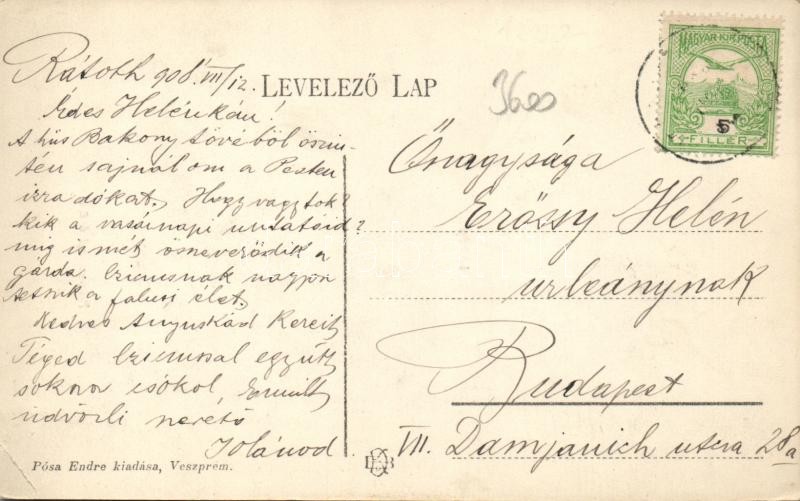 Rátoth 908 VII/12.
LEVELEZŐ LAP
3600
MAGYAR KIR. POSTA
5
FILLER
Édes Helénkám!
A hüs Bakony tövéből őszin-
tén sajnálom a Pesten
izzadókat. Hogy vagytok?
kik a vasárnapi mulatóid?
mig ismét összeverődik a
gárda. Iziemusnak nagyon
tetszik a falusi élet.
Kedves Anyuskád Kereit
Téged Iziemussal együtt
sokszor csókol, Emilt
üdvözli szerető
Jolánod.
Őnagysága
Erőssy Helén
urleánynak
Budapest
VII. Damjanich utcza 28a
Pósa Endre kiadása, Veszprem.